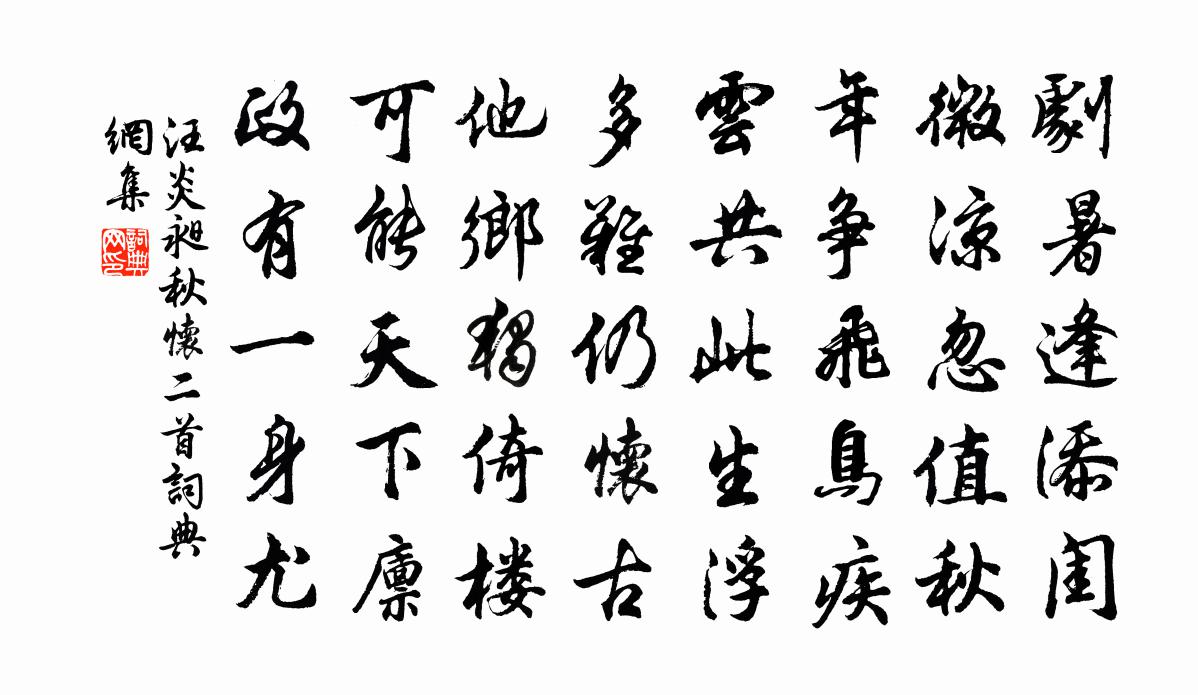 劇暑逢添閏
微涼忽值秋
年爭飛鳥疾
雲共此生浮
多難仍懷古
他鄉獨倚樓
可能天下廩
政有一身尤
汪炎昶秋懷二首詞典
網集
詞典
网印